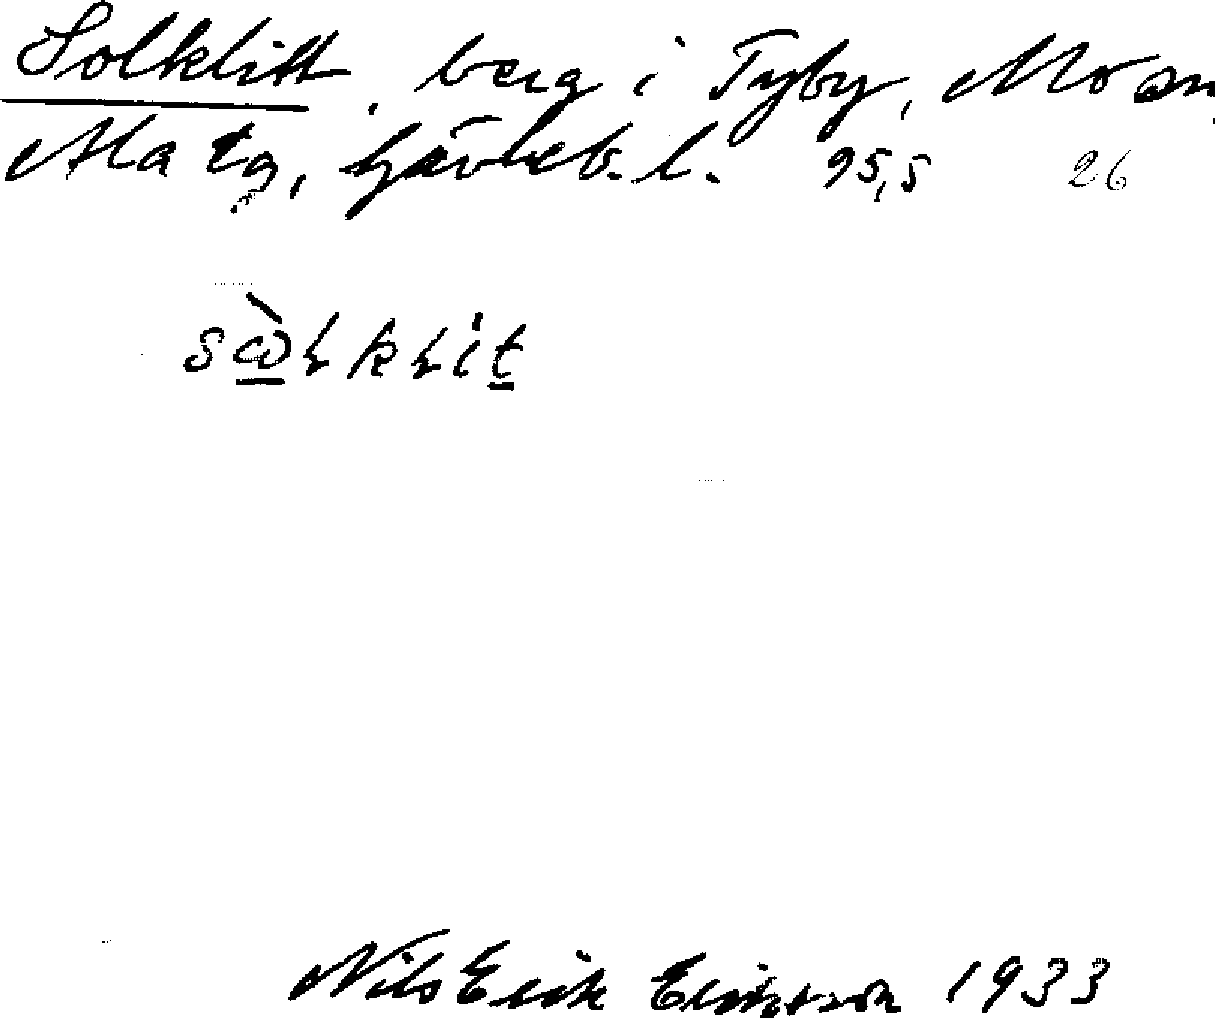 Solklitt, berg i Tyby, Mo sn
Ala tg, Gävleb. l. 95,5 26
Nils Erik Eriksson 1933